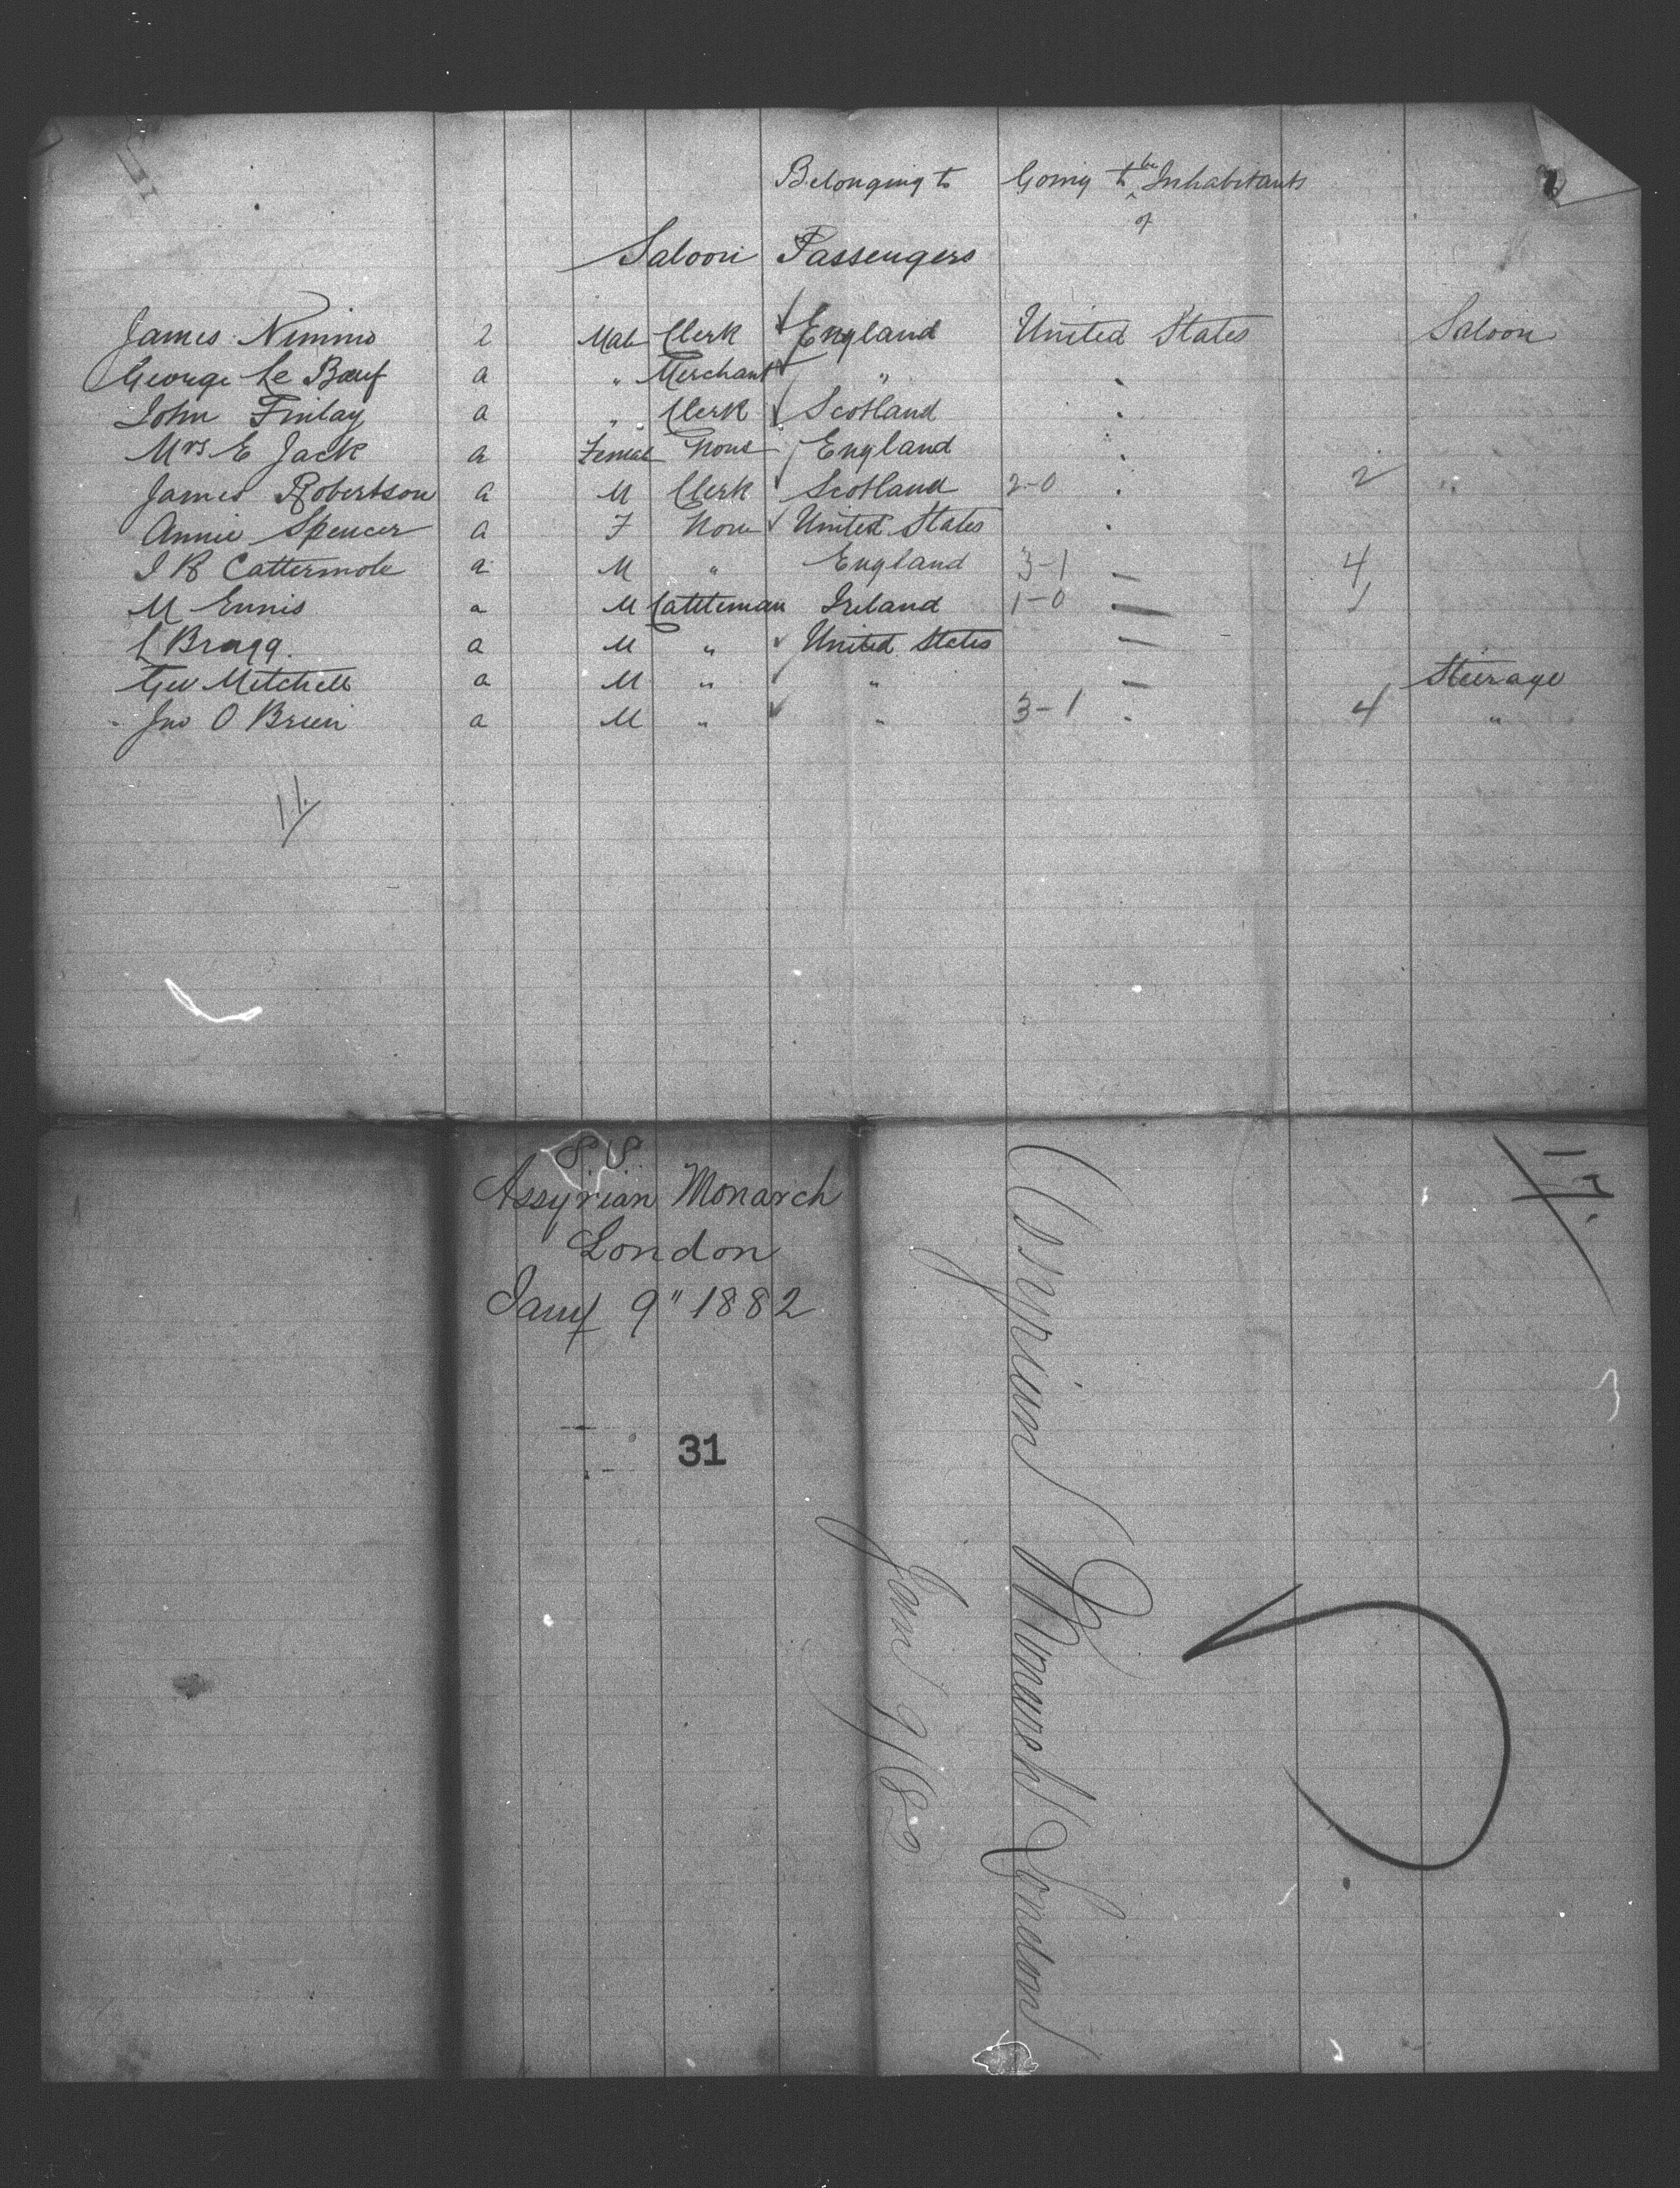 Belonging to Going to be Inhabitants of
Saloon Passengers
James Nimmo 2 Male Clerk England United States Saloon
George Le Bœuf a " Merchant " "
John Finlay a " Clerk Scotland "
Mrs E Jack a Female None England "
James Robertson a M Clerk Scotland 2-0 " 2 "
Annie Spencer a F None United States "
J R Cattermole a M " England 3-1 — 4
M Ennis a M Cattleman Ireland 1-0 — 1
Bragg. a M " United States —
Geo Mitchell a M " " — Steerage
Jno O Brien a M " " 3-1 " 4 "
11
S S
Assyrian Monarch
London
Jany 9" 1882
31
Assyrian Monarch London
Jany 9/82